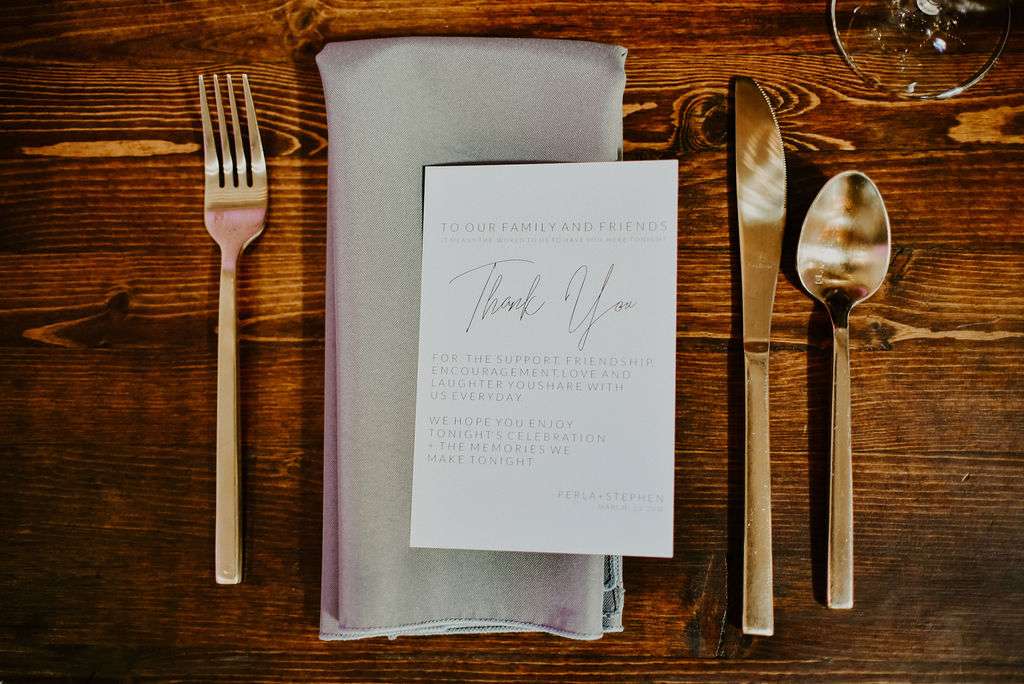 TO OUR FAMILY AND FRIENDS
IT MEANS THE WORLD TO US TO HAVE YOU HERE TONIGHT
Thank You
FOR THE SUPPORT, FRIENDSHIP,
ENCOURAGEMENT, LOVE AND
LAUGHTER YOUSHARE WITH
US EVERYDAY
WE HOPE YOU ENJOY
TONIGHT'S CELEBRATION
+ THE MEMORIES WE
MAKE TONIGHT
PERLA+STEPHEN
MARCH